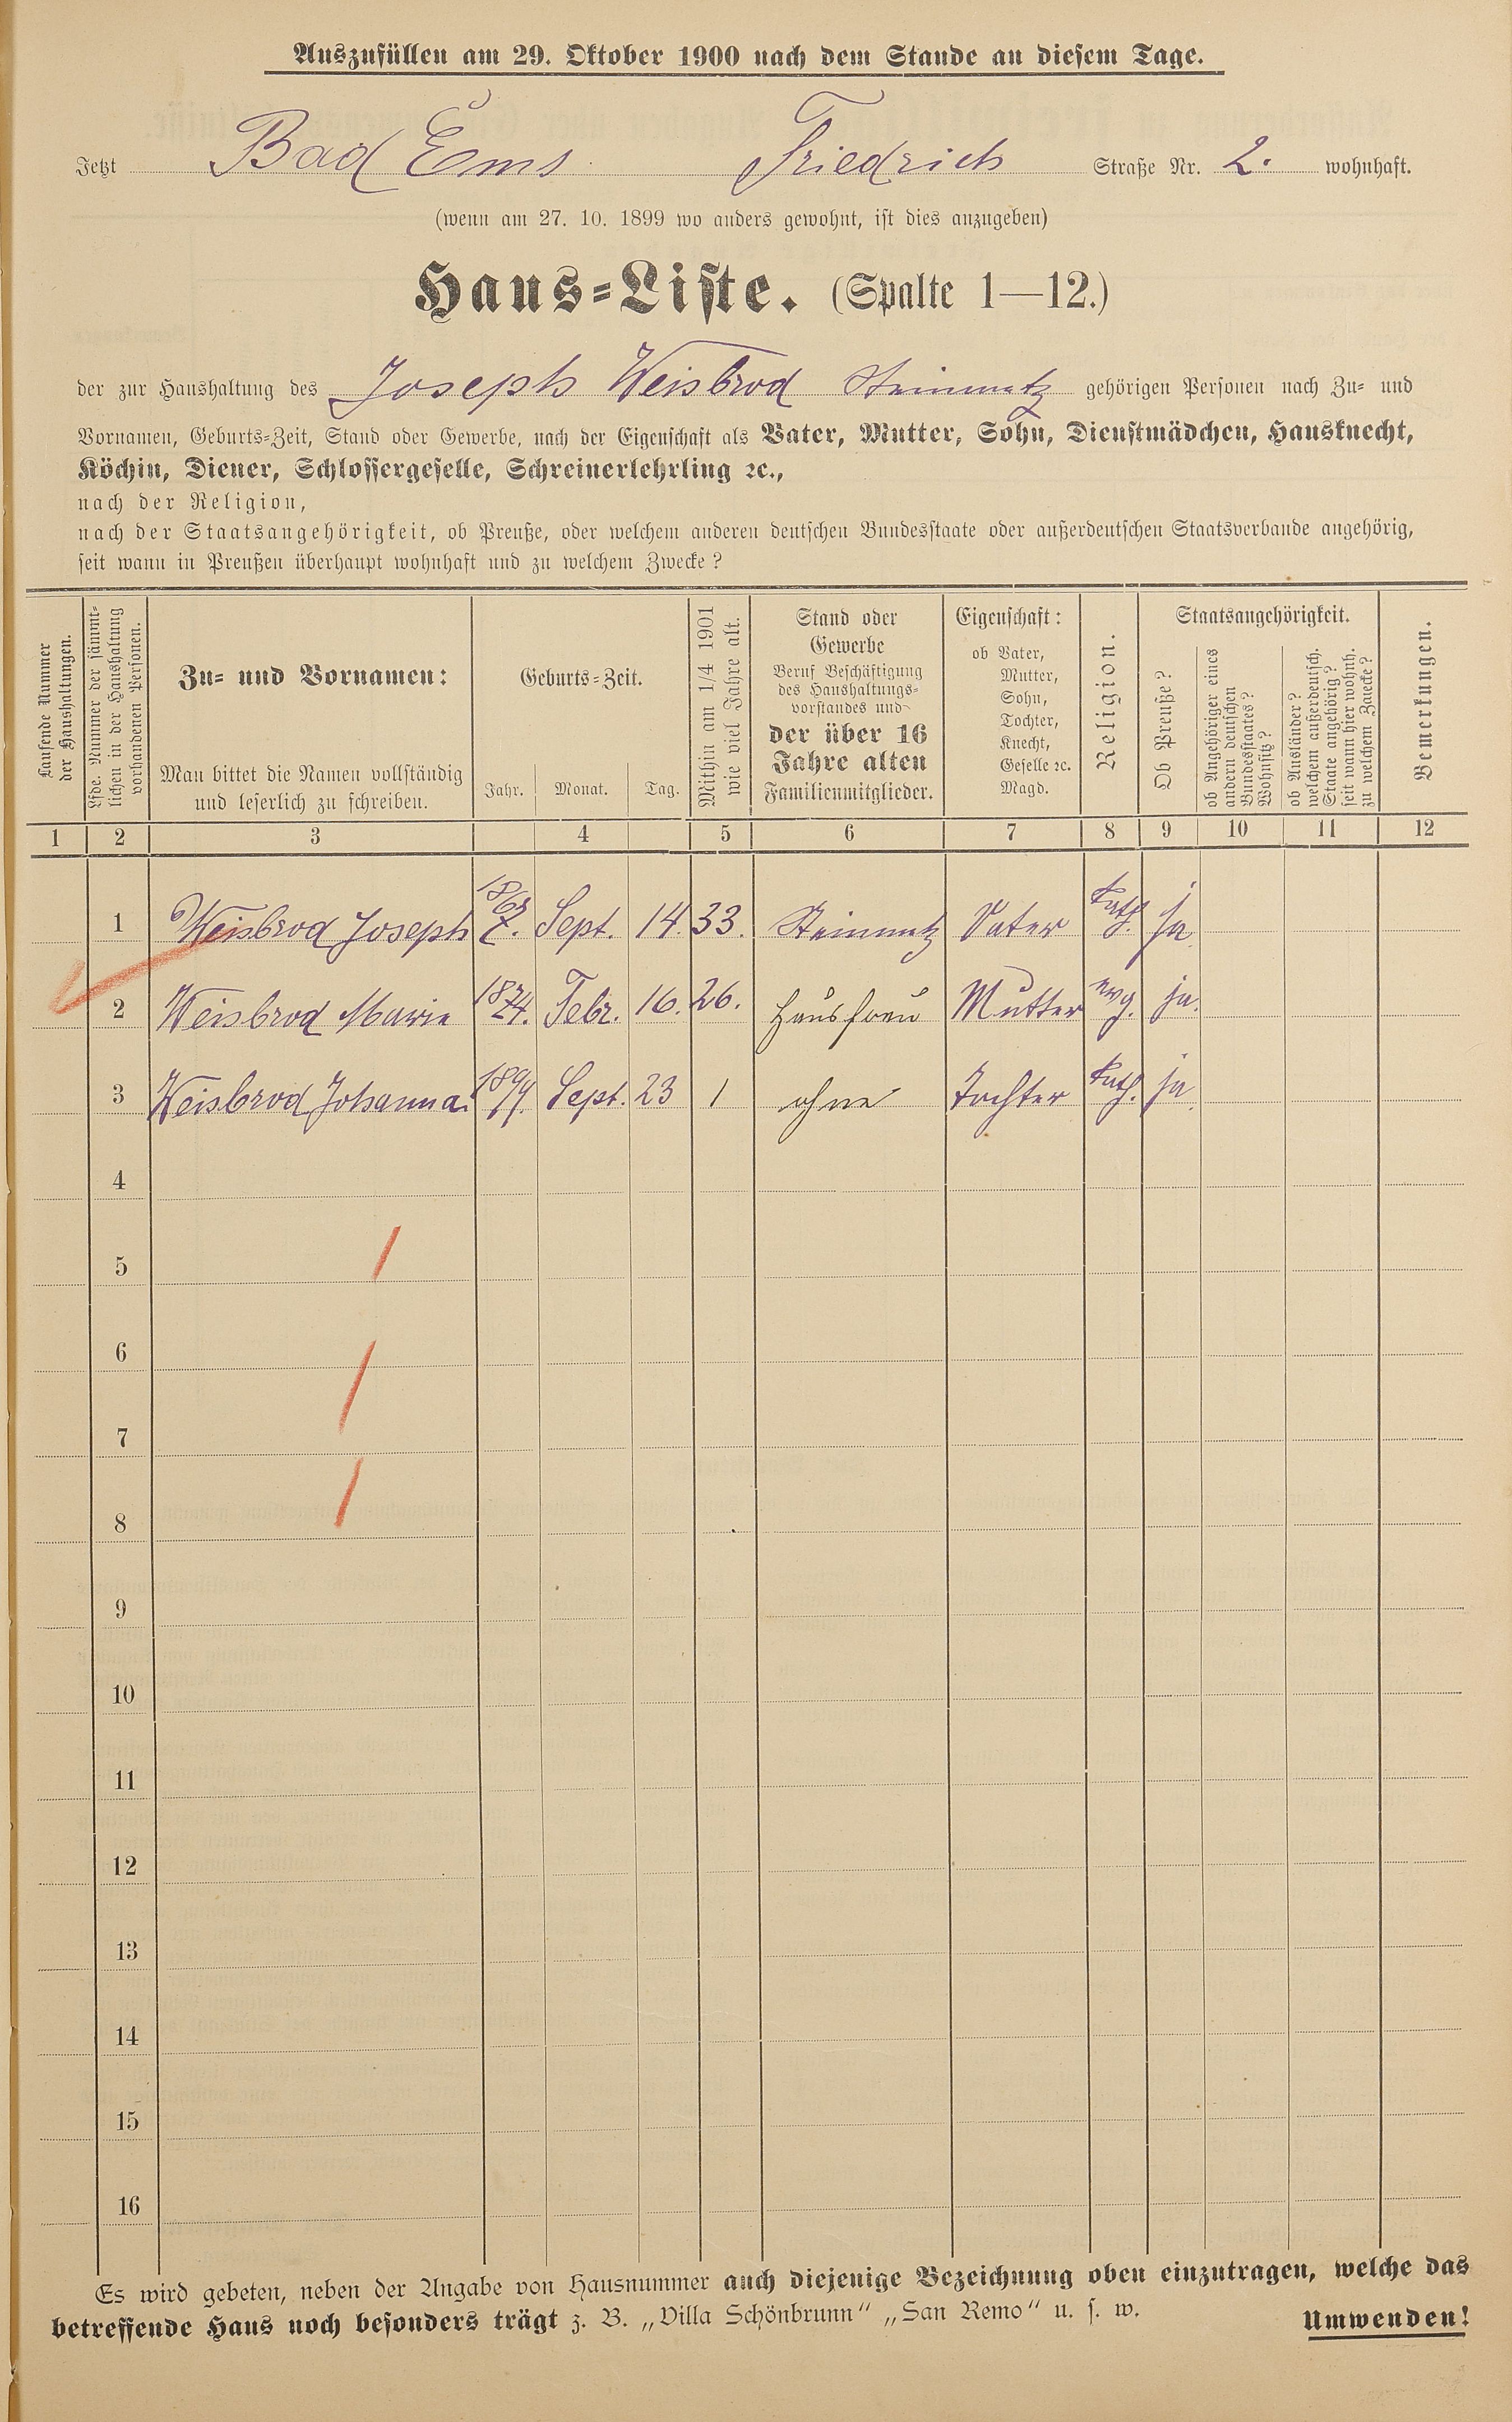 Auszufüllen am 29. Oktober 1900 nach dem Stande an diesem Tage.
Jetzt Bad Ems Friedrich Straße Nr. 2. wohnhaft.
(wenn am 27. 10. 1899 wo anders gewohnt, ist dies anzugeben)
Haus-Liste. (Spalte 1—12.)
der zur Haushaltung des Joseph Weisbrod Steinmetz gehörigen Personen nach Zu- und
Vornamen, Geburts-Zeit, Stand oder Gewerbe, nach der Eigenschaft als Vater, Mutter, Sohn, Dienstmädchen, Hausknecht,
Köchin, Diener, Schlossergeselle, Schreinerlehrling ꝛc.,
nach der Religion,
nach der Staatsangehörigkeit, ob Preuße, oder welchem anderen deutschen Bundesstaate oder außerdeutschen Staatsverbande angehörig,
seit wann in Preußen überhaupt wohnhaft und zu welchem Zwecke?
Laufende Nummer
der Haushaltungen.
Lfde. Nummer der sämmt-
lichen in der Haushaltung
vorhandenen Personen.
Zu- und Vornamen:
Man bittet die Namen vollständig
und leserlich zu schreiben.
Geburts-Zeit.
Jahr. Monat. Tag.
Mithin am 1/4 1901
wie viel Jahre alt.
Stand oder
Gewerbe
Beruf Beschäftigung
des Haushaltungs-
vorstandes und
der über 16
Jahre alten
Familienmitglieder.
Eigenschaft:
ob Vater,
Mutter,
Sohn,
Tochter,
Knecht,
Geselle ꝛc.
Magd.
Religion.
Staatsangehörigkeit.
Ob Preuße?
ob Angehöriger eines
andern deutschen
Bundesstaates?
Wohnsitz?
ob Ausländer?
welchem außerdeutsch.
Staate angehörig?
seit wann hier wohnh.
zu welchem Zwecke?
Bemerkungen.
1 2 3 4 5 6 7 8 9 10 11 12
1 Weisbrod Joseph 1867. Sept. 14. 33. Steinmetz Vater kath. ja
2 Weisbrod Maria 1874. Febr. 16. 26. Hausfrau Mutter evg. ja.
3 Weisbrod Johanna. 1899. Sept. 23 1 ohne Tochter kath. ja
4
5
6
7
8
9
10
11
12
13
14
15
16
Es wird gebeten, neben der Angabe von Hausnummer auch diejenige Bezeichnung oben einzutragen, welche das
betreffende Haus noch besonders trägt z. B. „Villa Schönbrunn“ „San Remo“ u. s. w.
Umwenden!